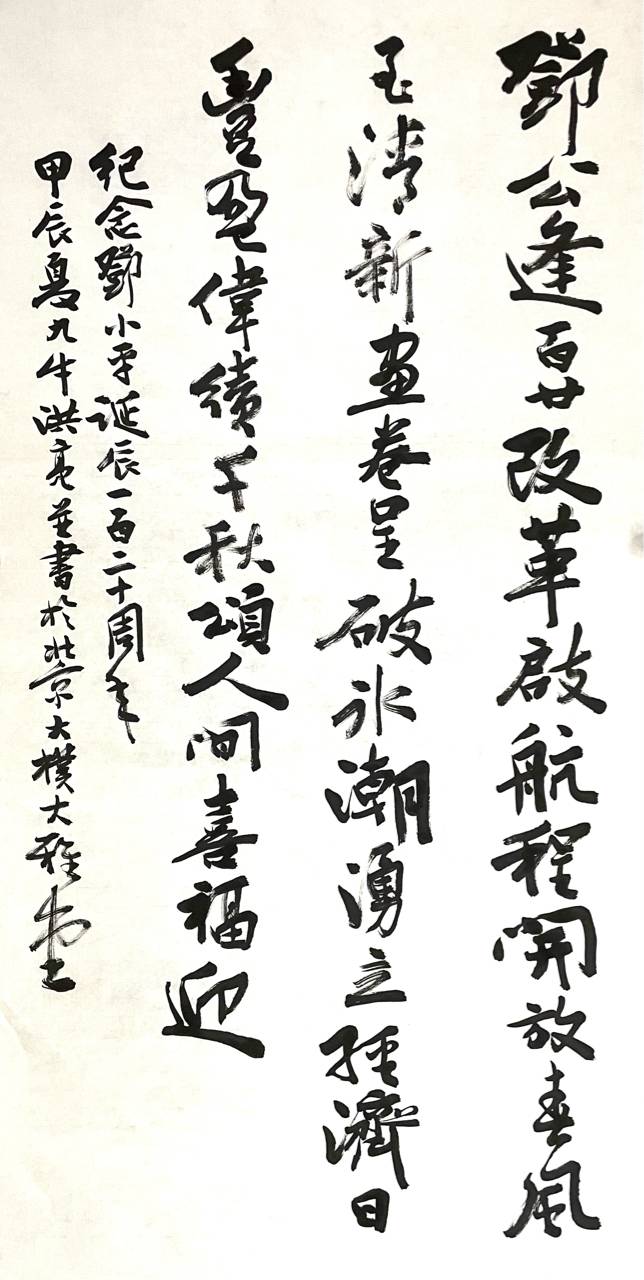 鄧公逢百廿改革啟航程開放春風
至清新畫卷呈破冰潮湧立經濟日
豐盈偉績千秋頌人間喜福迎
紀念鄧小平誕辰一百二十周年
甲辰夏九牛洪亮並書於北京大樸大雅堂